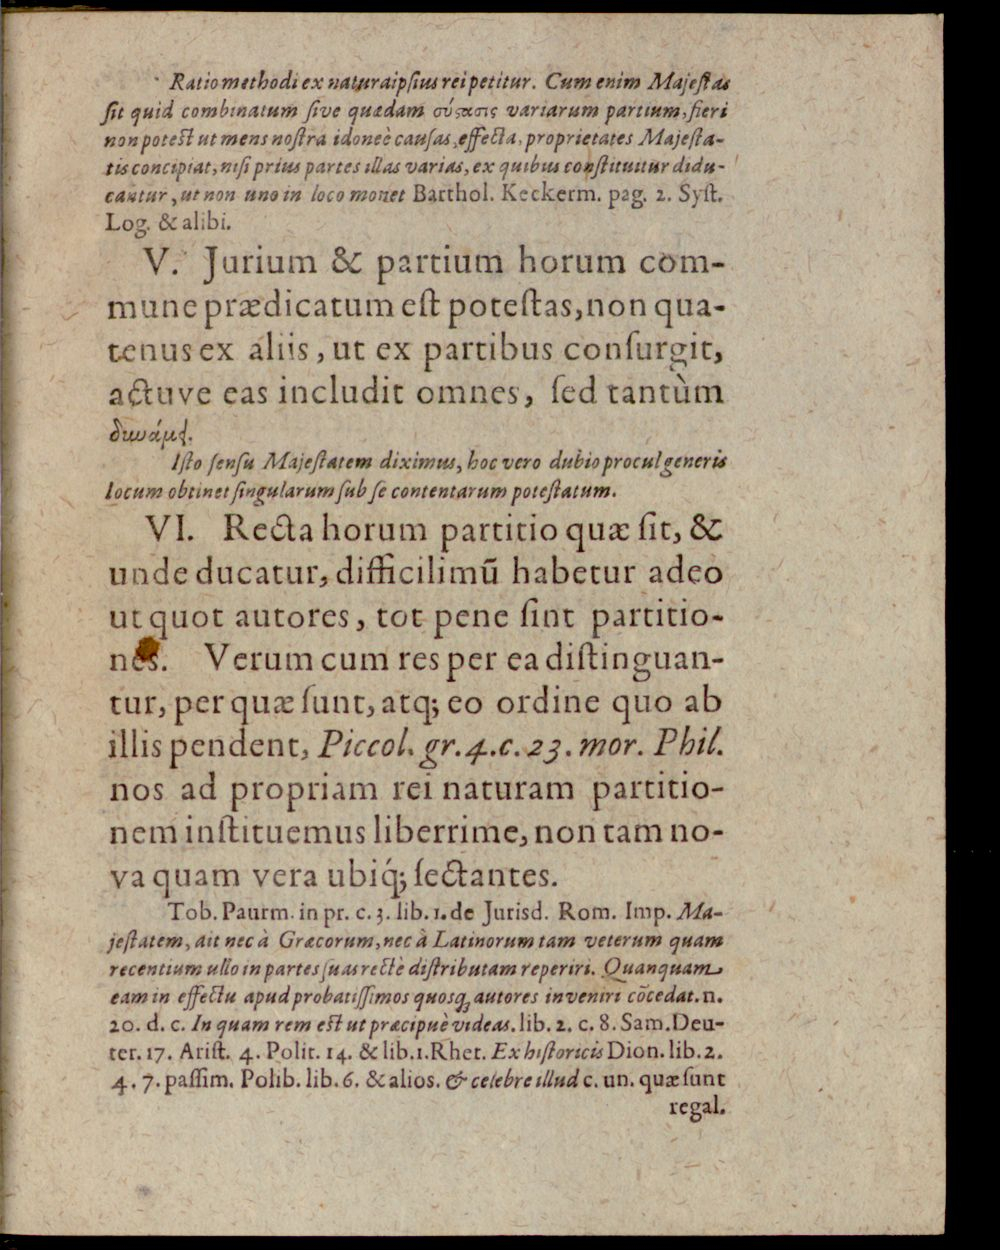 Ratio methodi ex natura ipſius rei petitur. Cum enim Majeſtas
ſit quid combinatum ſive quædam σύςασις variarum partium, fieri
non poteſt ut mens noſtra idoneè cauſas, effecta, proprietates Majeſta-
tis concipiat, niſi prius partes illas varias, ex quibus conſtituitur didu-
cantur, ut non uno in loco monet Barthol. Keckerm. pag. 2. Syſt.
Log. & alibi.
V. Jurium & partium horum com-
mune prædicatum eſt poteſtas, non qua-
tenus ex aliis, ut ex partibus conſurgit,
actuve eas includit omnes, ſed tantùm
δυνάμει.
Iſto ſenſu Majeſtatem diximus, hoc vero dubio procul generis
locum obtinet ſingularum ſub ſe contentarum poteſtatum.
VI. Recta horum partitio quæ ſit, &
unde ducatur, difficilimū habetur adeo
ut quot autores, tot pene ſint partitio-
nes. Verum cum res per ea diſtinguan-
tur, per quæ ſunt, atq; eo ordine quo ab
illis pendent, Piccol. gr. 4. c. 23. mor. Phil.
nos ad propriam rei naturam partitio-
nem inſtituemus liberrime, non tam no-
va quam vera ubiq́; ſectantes.
Tob. Paurm. in pr. c. 3. lib. 1. de Jurisd. Rom. Imp. Ma-
jeſtatem, ait nec à Græcorum, nec à Latinorum tam veterum quam
recentium ullo in partes ſuas rectè diſtributam reperiri. Quanquam
eam in effectu apud probatiſſimos quosq; autores inveniri cōcedat. n.
20. d. c. In quam rem eſt ut præcipuè videas. lib. 2. c. 8. Sam. Deu-
ter. 17. Ariſt. 4. Polit. 14. & lib. 1. Rhet. Ex hiſtoricis Dion. lib. 2.
4. 7. paſſim. Polib. lib. 6. & alios. & celebre illud c. un. quæ ſunt
regal.